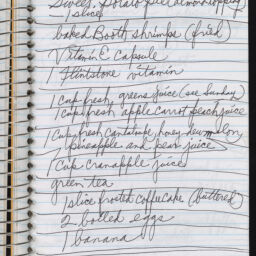 Sweet Potato
1 slice
baked Booth shrimps (fried)
Vitamin E capsule
1 Flintstone vitamin
1 cup fresh greens juice (see Sunday)
1 cup fresh apple carrot peach juice
1 cup fresh cantalope, honey dew melon,
pineapple and pear juice
1 cup cranapple juice
green tea
1 slice frosted coffeecake (buttered)
2 boiled eggs
1 banana